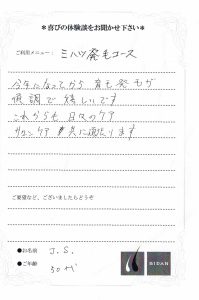 *喜びの体験談をお聞かせ下さい*
ご利用メニュー：ミハツ発毛コース
今年になってから 育毛発毛が
順調で嬉しいです
これからも 日々のケア
サロンケア 共に頑張ります
ご要望など、ございましたらどうぞ
●お名前 J.S.
●ご年齢 30代
BIDAN